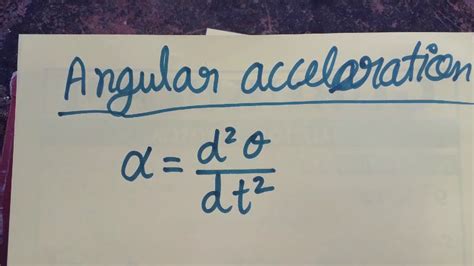 Angular acceleration
α = d²θ/dt²